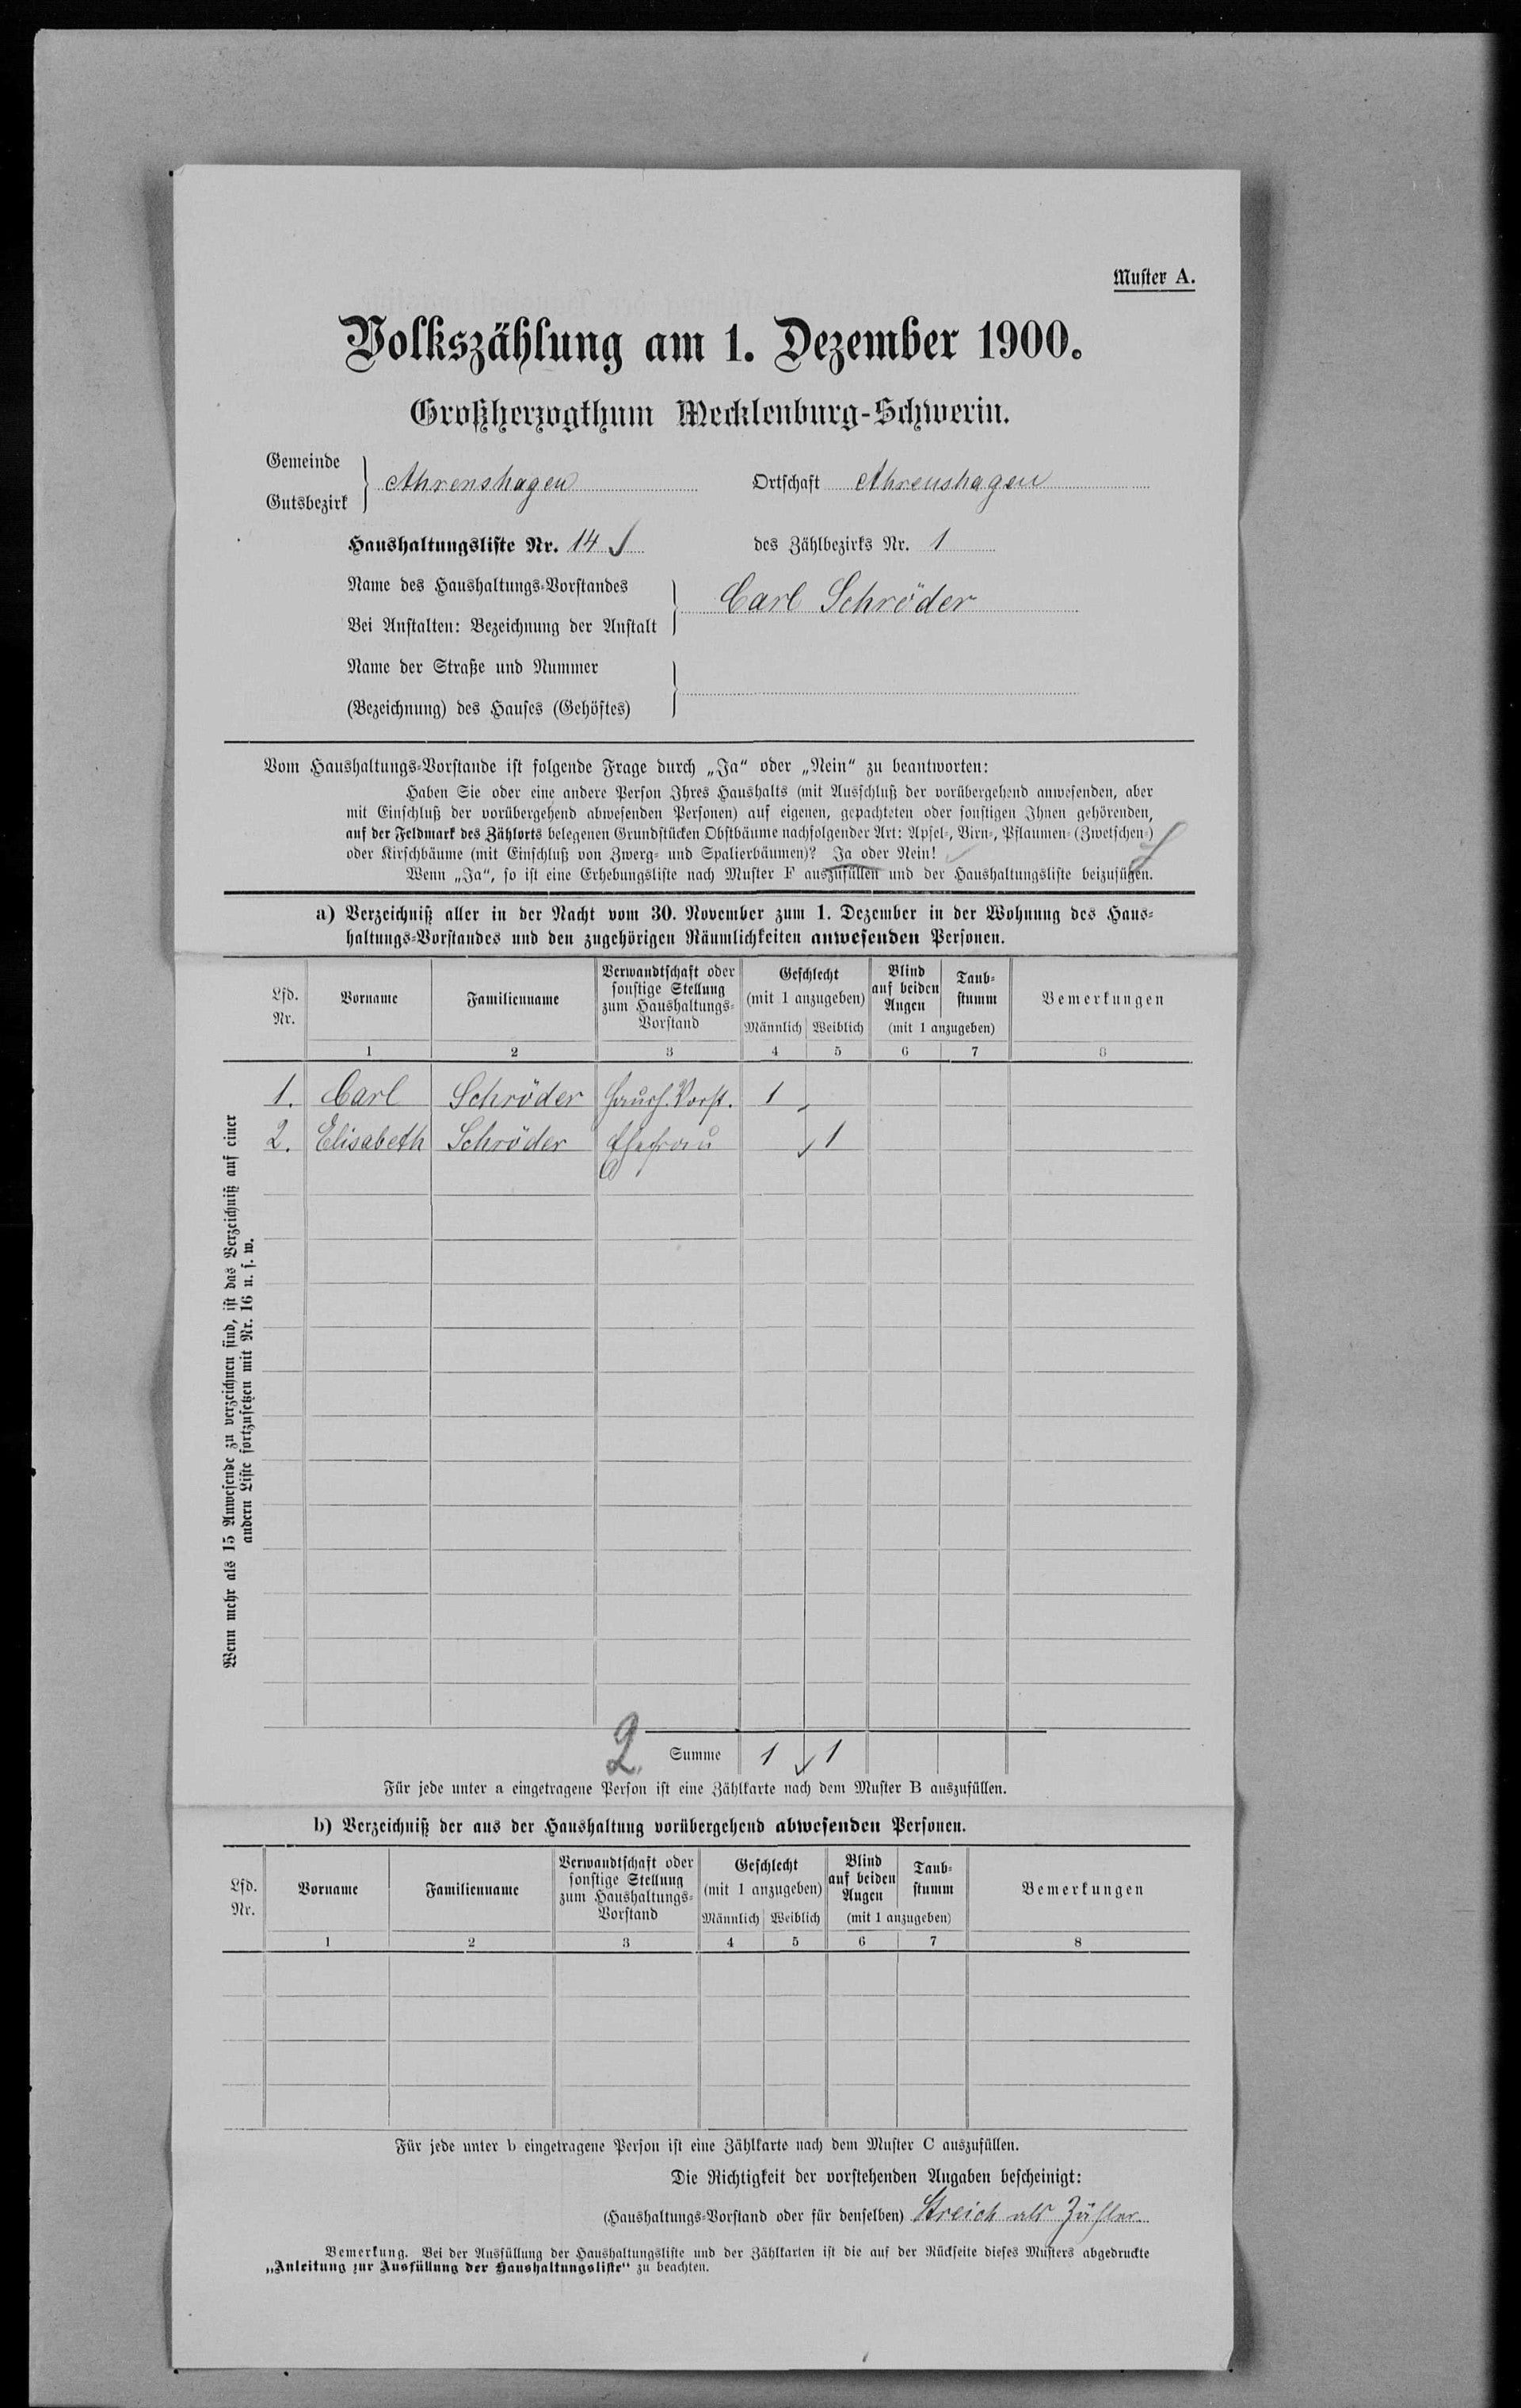 Muster A.
Volkszählung am 1. Dezember 1900.
Großherzogthum Mecklenburg-Schwerin.
Gemeinde
Gutsbezirk
Ahrenshagen
Ortschaft Ahrenshagen
Haushaltungsliste Nr. 14
des Zählbezirks Nr. 1
Name des Haushaltungs-Vorstandes
Bei Anstalten: Bezeichnung der Anstalt
Carl Schröder
Name der Straße und Nummer
(Bezeichnung) des Hauses (Gehöftes)
Vom Haushaltungs-Vorstande ist folgende Frage durch „Ja“ oder „Nein“ zu beantworten:
Haben Sie oder eine andere Person Ihres Haushalts (mit Ausschluß der vorübergehend anwesenden, aber
mit Einschluß der vorübergehend abwesenden Personen) auf eigenen, gepachteten oder sonstigen Ihnen gehörenden,
auf der Feldmark des Zählorts belegenen Grundstücken Obstbäume nachfolgender Art: Apfel-, Birn-, Pflaumen- (Zwetschen-)
oder Kirschbäume (mit Einschluß von Zwerg- und Spalierbäumen)? Ja oder Nein!
Wenn „Ja“, so ist eine Erhebungsliste nach Muster F auszufüllen und der Haushaltungsliste beizufügen.
a) Verzeichniß aller in der Nacht vom 30. November zum 1. Dezember in der Wohnung des Haus-
haltungs-Vorstandes und den zugehörigen Räumlichkeiten anwesenden Personen.
Lfd. Nr. Vorname Familienname Verwandtschaft oder sonstige Stellung zum Haushaltungs-Vorstand Geschlecht (mit 1 anzugeben) Männlich Weiblich Blind auf beiden Augen Taub-stumm (mit 1 anzugeben) Bemerkungen
1 2 3 4 5 6 7 8
1. Carl Schröder Haush. Vorst. 1
2. Elisabeth Schröder Ehefrau 1
Wenn mehr als 15 Anwesende zu verzeichnen sind, ist das Verzeichniß auf einer
andern Liste fortzusetzen mit Nr. 16 u. s. w.
2. Summe 1 1
Für jede unter a eingetragene Person ist eine Zählkarte nach dem Muster B auszufüllen.
b) Verzeichniß der aus der Haushaltung vorübergehend abwesenden Personen.
Lfd. Nr. Vorname Familienname Verwandtschaft oder sonstige Stellung zum Haushaltungs-Vorstand Geschlecht (mit 1 anzugeben) Männlich Weiblich Blind auf beiden Augen Taub-stumm (mit 1 anzugeben) Bemerkungen
1 2 3 4 5 6 7 8
Für jede unter b eingetragene Person ist eine Zählkarte nach dem Muster C auszufüllen.
Die Richtigkeit der vorstehenden Angaben bescheinigt:
(Haushaltungs-Vorstand oder für denselben) Streich als Zähler
Bemerkung. Bei der Ausfüllung der Haushaltungsliste und der Zählkarten ist die auf der Rückseite dieses Musters abgedruckte
„Anleitung zur Ausfüllung der Haushaltungsliste“ zu beachten.